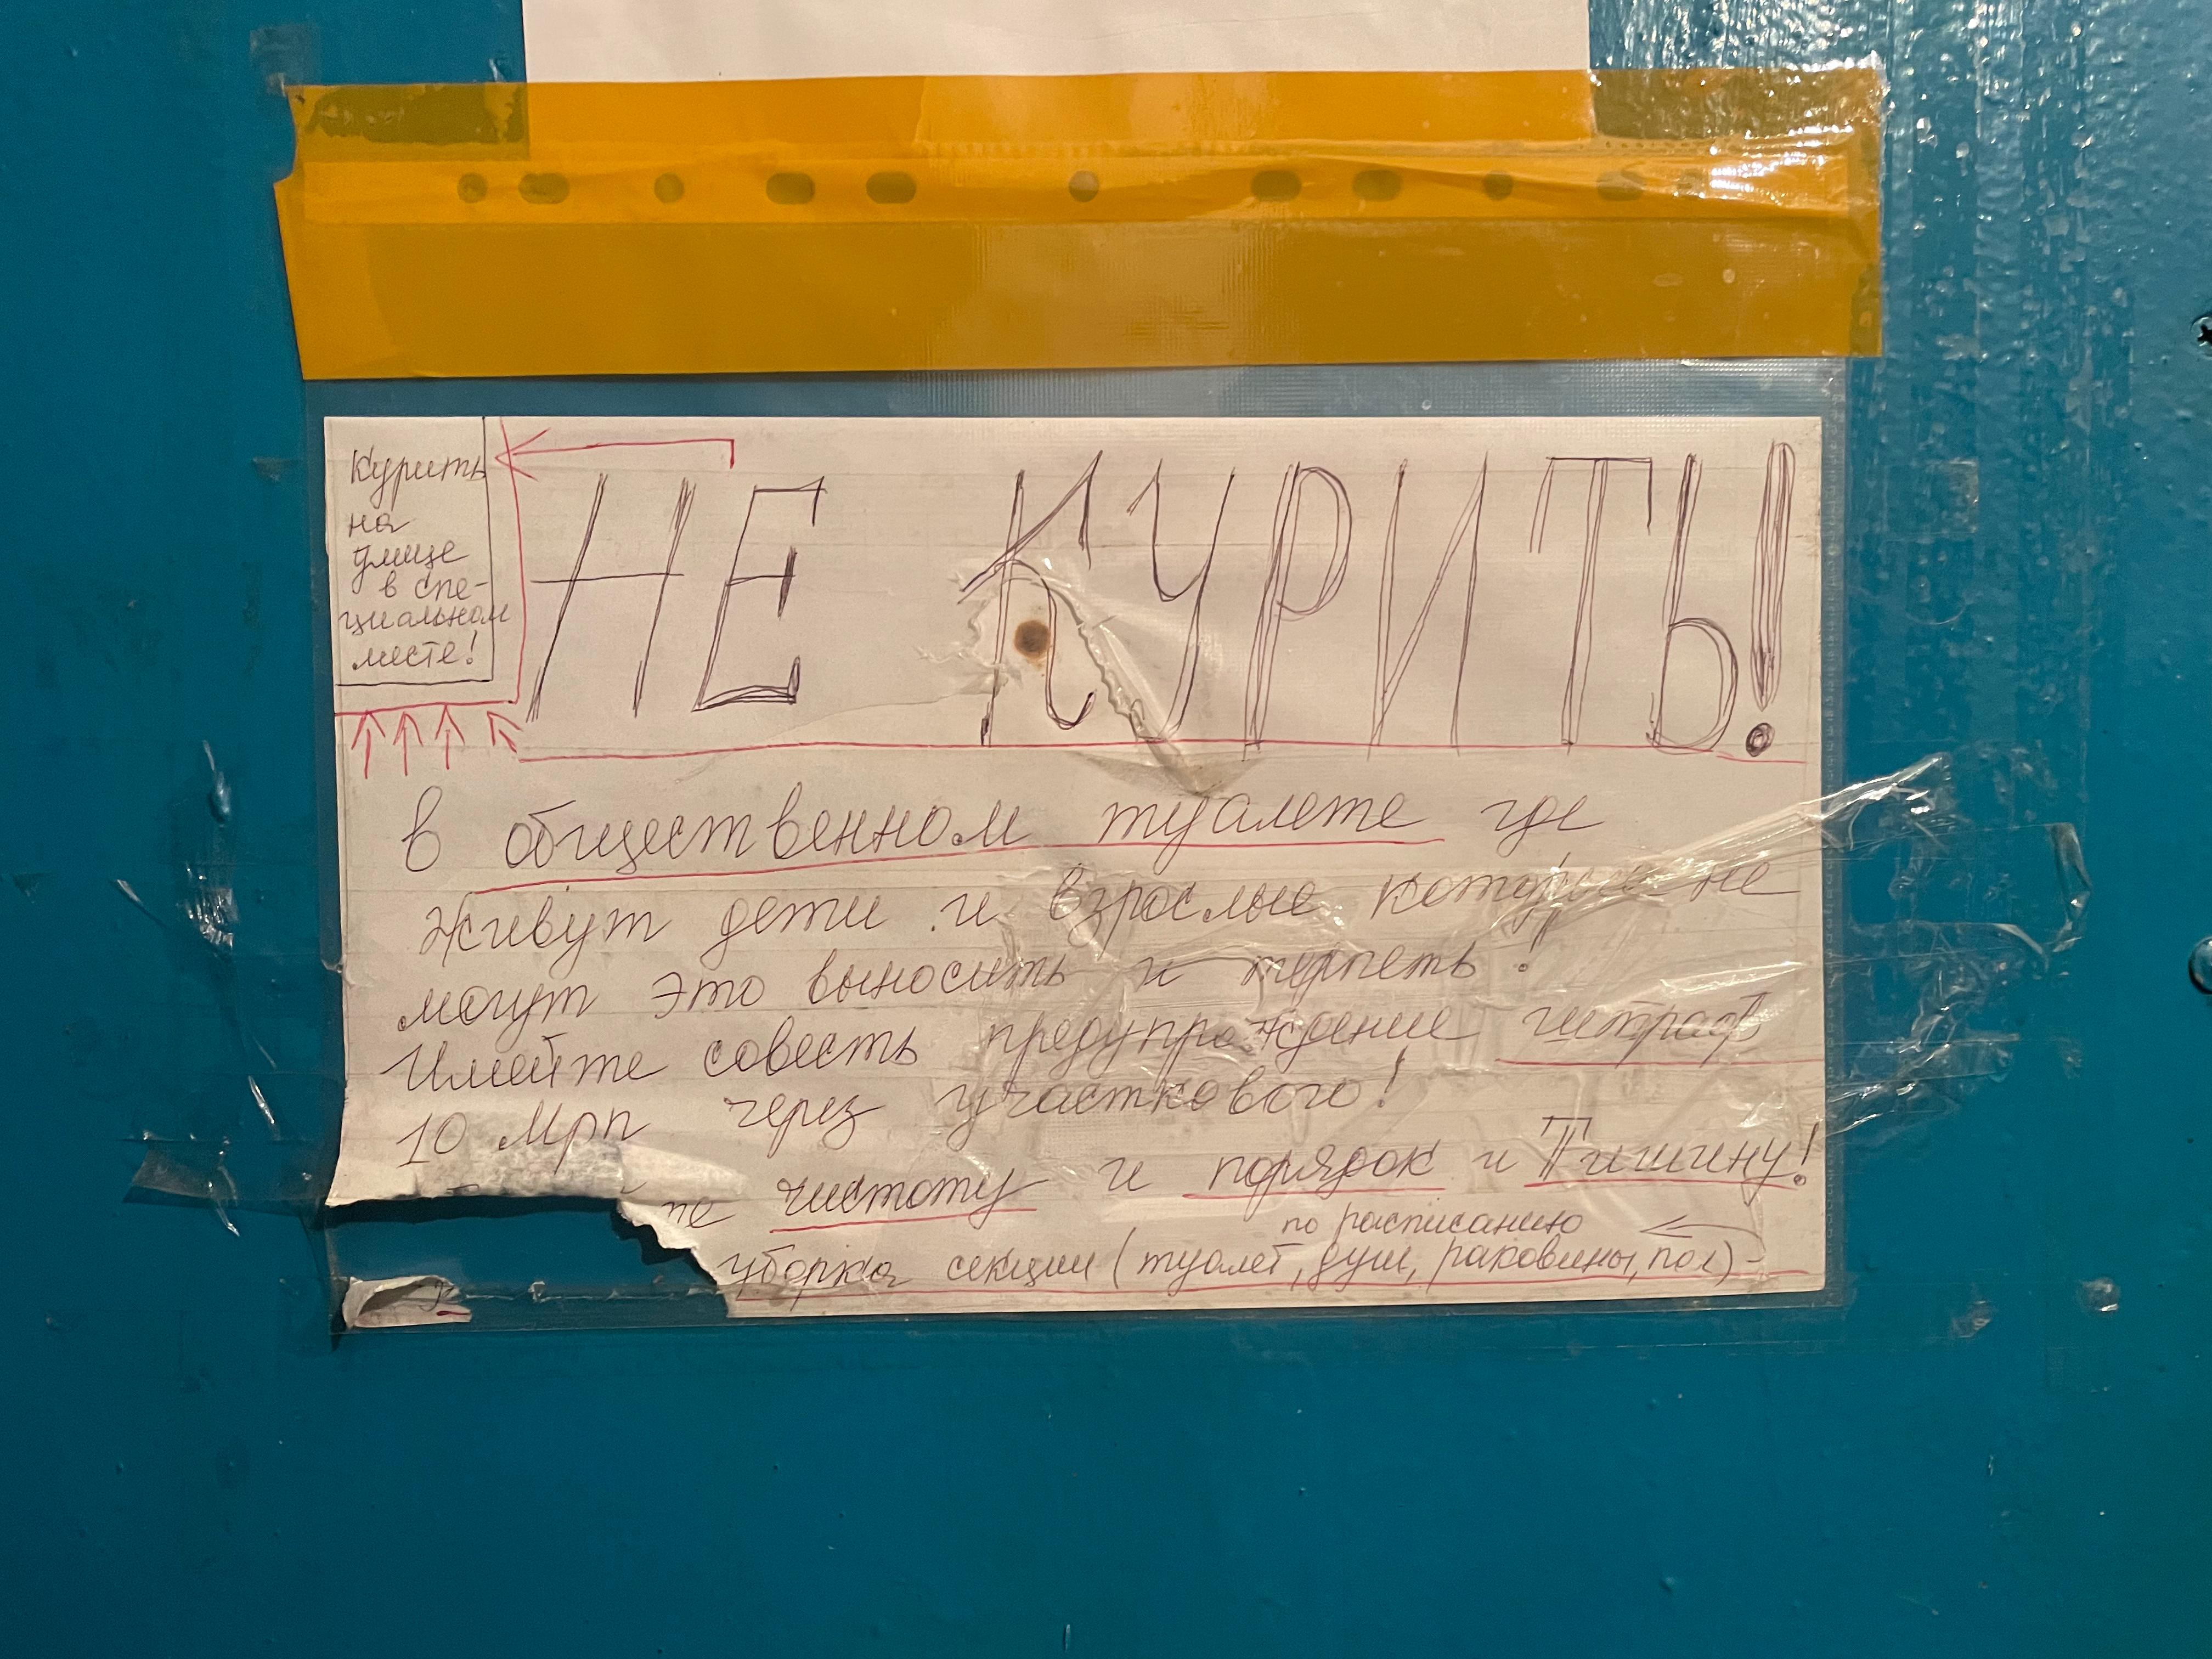 Курить
на
улице
в спе-
циальном
месте!
НЕ КУРИТЬ!
в общественном туалете где
живут дети и взрослые которые не
могут это выносить и терпеть!
Имейте совесть предупреждение штраф
10 Мрп через участкового!
те чистоту и порядок и Тишину!
по расписанию
уборка секции (туалет, душ, раковины, пол)-